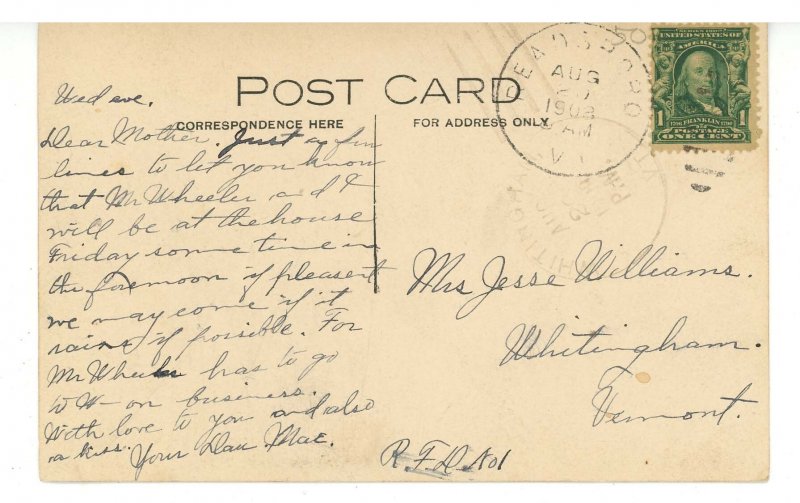 POST CARD
CORRESPONDENCE HERE
FOR ADDRESS ONLY
Wed eve.
Dear Mother. Just a few
lines to let you know
that Mr Wheeler and I
will be at the house
Friday some time in
the forenoon if pleasent
we may come if it
rains if possible. For
Mr Wheeler has to go
to W- on business.
With love to you and also
a kiss. Your Dau Mae.
Mrs Jesse Williams.
Whitingham.
Vermont.
R.F.D. No1
READSBORO
AUG
1908
AM
VT
WHITINGHAM
AUG
SERIES 1902
UNITED STATES OF AMERICA
1706 FRANKLIN 1790
POSTAGE
1 ONE CENT 1